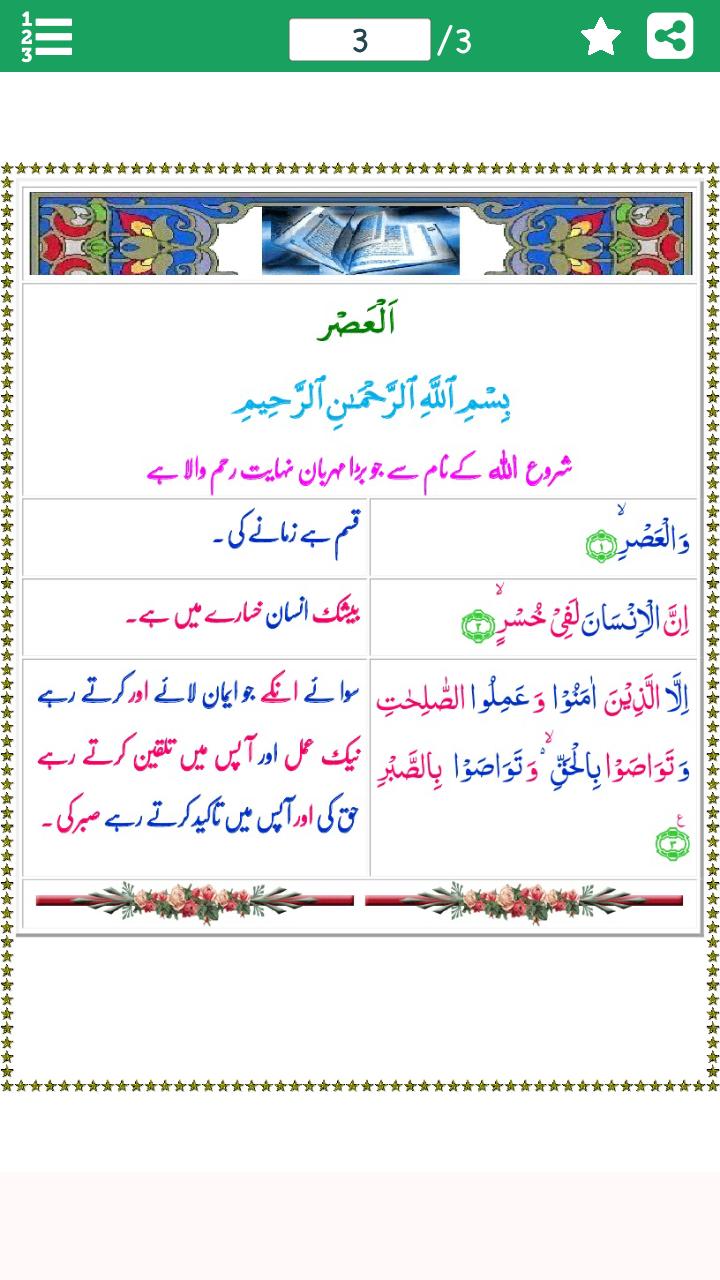 1
2
3
3
/3
اَلْعَصْر
بِسْمِ ٱللَّهِ ٱلرَّحْمَـٰنِ ٱلرَّحِيمِ
شروع اللہ کےنام سے جو بڑا مہربان نہایت رحم والا ہے
وَالْعَصْرِۙ ﴿۱﴾
قسم ہے زمانے کی ۔
اِنَّ الْاِنْسَانَ لَفِیْ خُسْرٍۙ ﴿۲﴾
بیشک انسان خسارے میں ہے۔
اِلَّا الَّذِیْنَ اٰمَنُوْا وَ عَمِلُوا الصّٰلِحٰتِ
وَ تَوَاصَوْا بِالْحَقِّ ۙ۬ وَ تَوَاصَوْا بِالصَّبْرِ
﴿۳﴾ ع
سوائے انکے جو ایمان لائے اور کرتے رہے
نیک عمل اور آپس میں تلقین کرتے رہے
حق کی اور آپس میں تاکید کرتے رہے صبر کی ۔